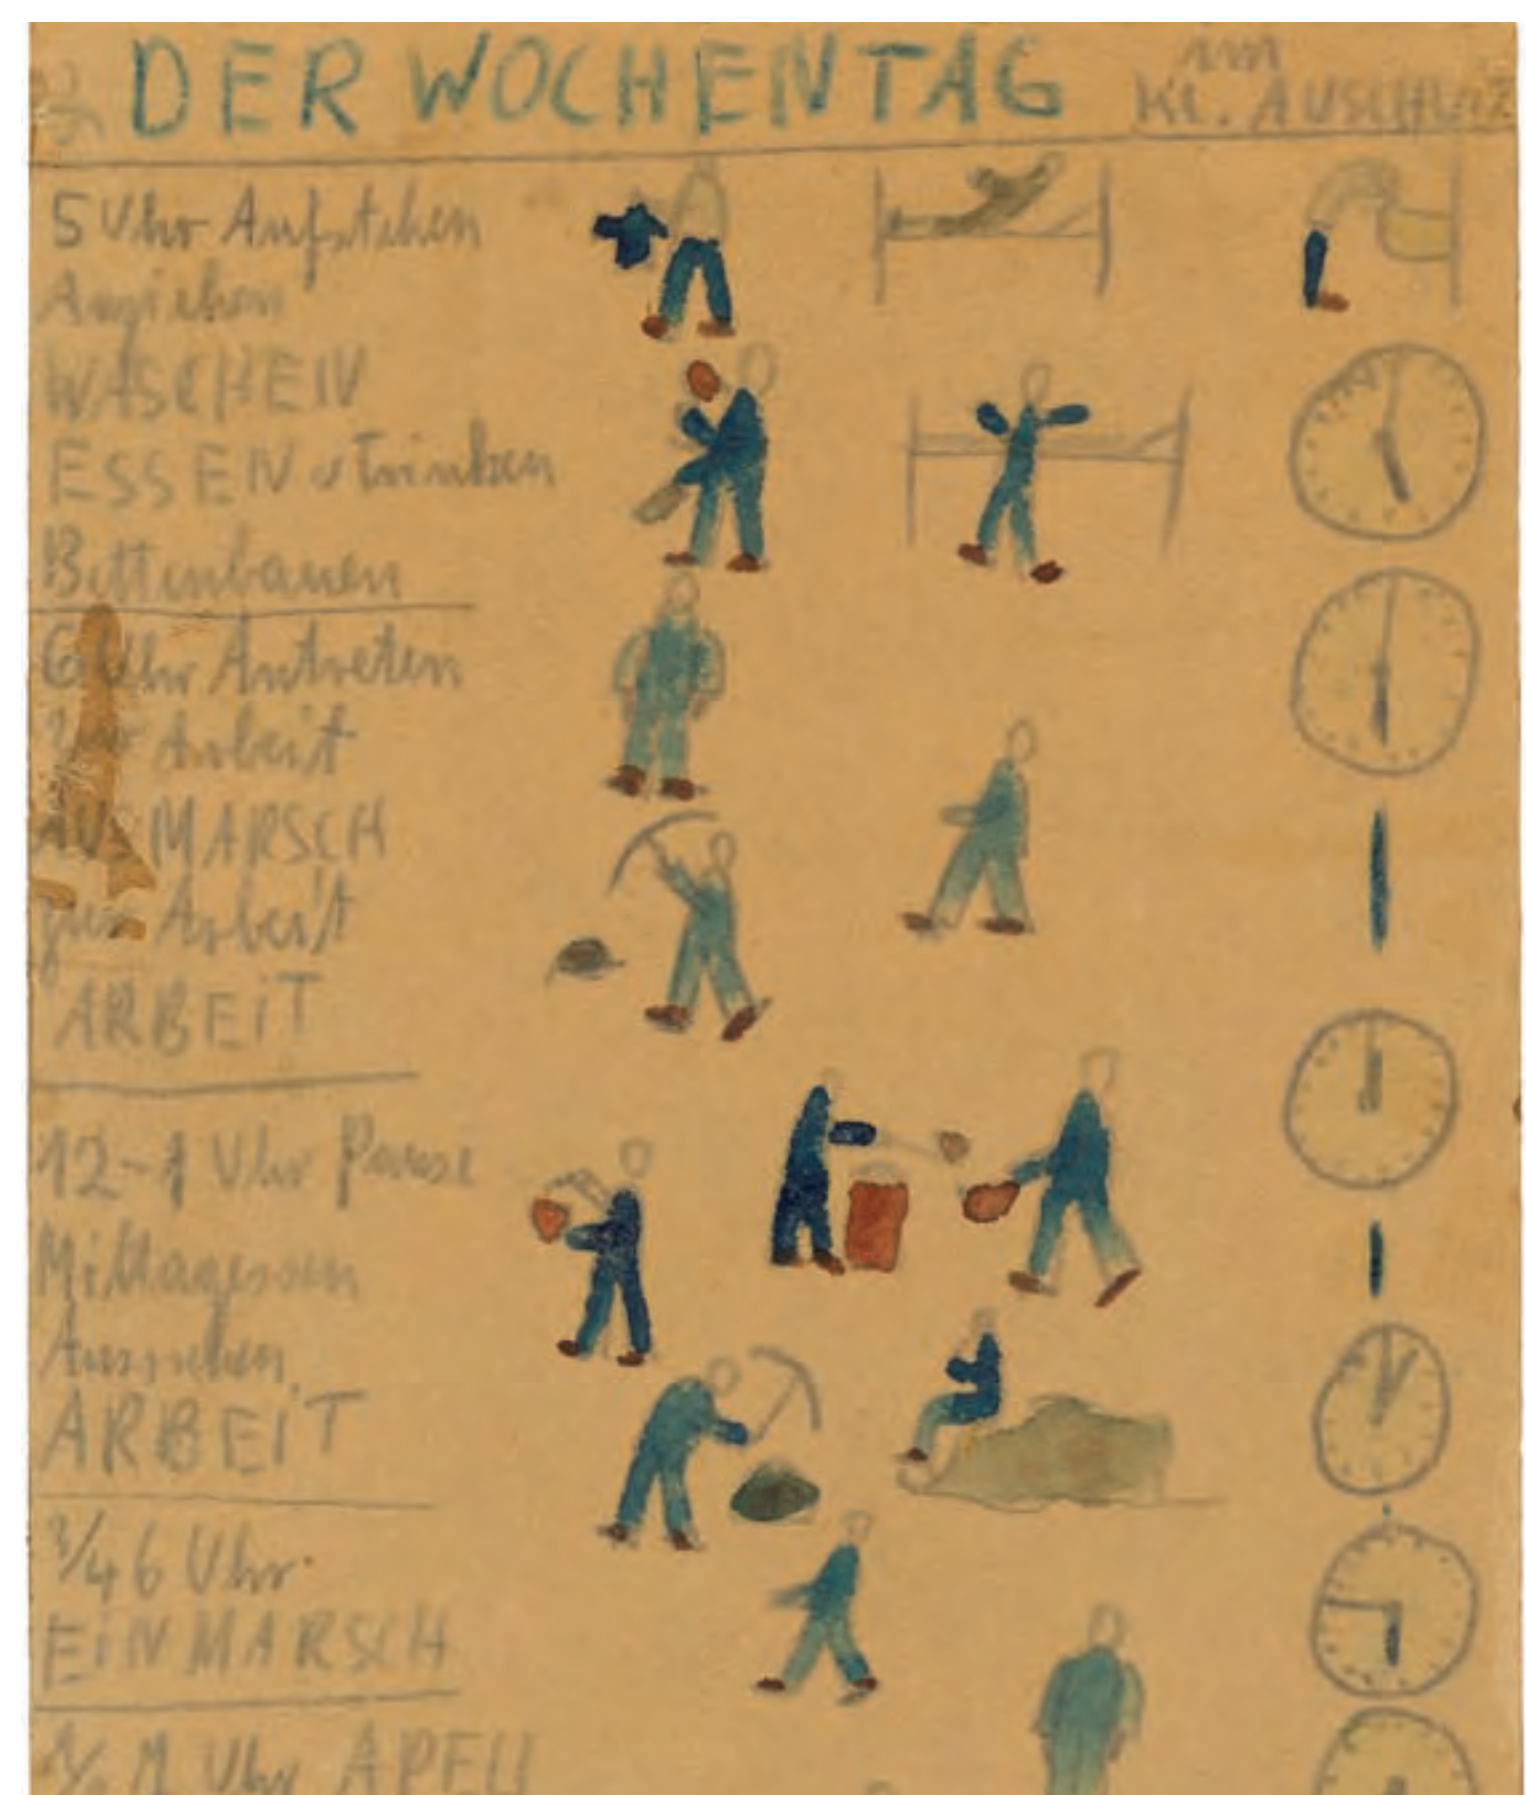 DER WOCHENTAG im
KL. AUSCHWITZ
5 Uhr Aufstehen
Anziehen
WASCHEN
ESSEN u Trinken
Bettenbauen
6 Uhr Antreten
zur Arbeit
AUSMARSCH
zur Arbeit
ARBEIT
12-1 Uhr Pause
Mittagessen
Ausruhen
ARBEIT
3/4 6 Uhr
EINMARSCH
Uhr APELL